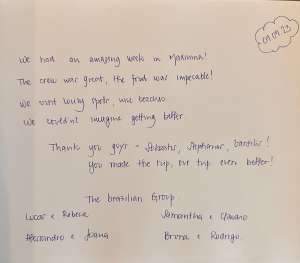 09.09.23
We had an amazing week in
The crew was great, the food was impecable!
We visit lovely spots, nice beaches
We couldn't imagine getting better.
Thank you guys -
You made the trip, our trip even better!
The brasilian Group.
Lucas e Rebeca
Samantha e
Alessandro e Joana
Bruna e Rodrigo.